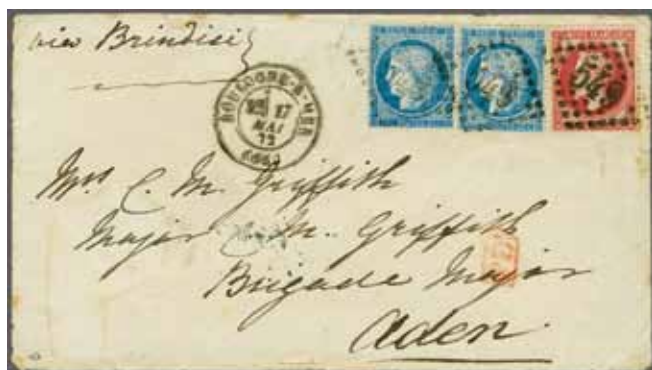 via Brindisi
BOULOGNE-S-MER
17
MAI
72
549
Mrs C. M. Griffith
Major C. M. Griffith
Brigade Major
Aden.
PD